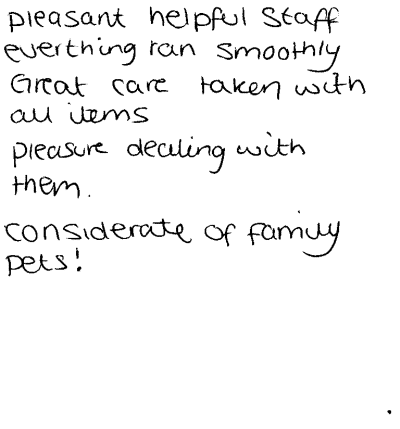 pleasant helpful Staff
everthing ran smoothly
Great care taken with
all items
pleasure dealing with
them.
considerate of family
pets!